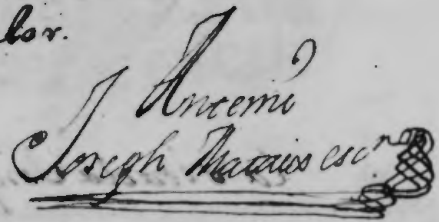 lor.
Antemi
Joseph Macaius esc.no